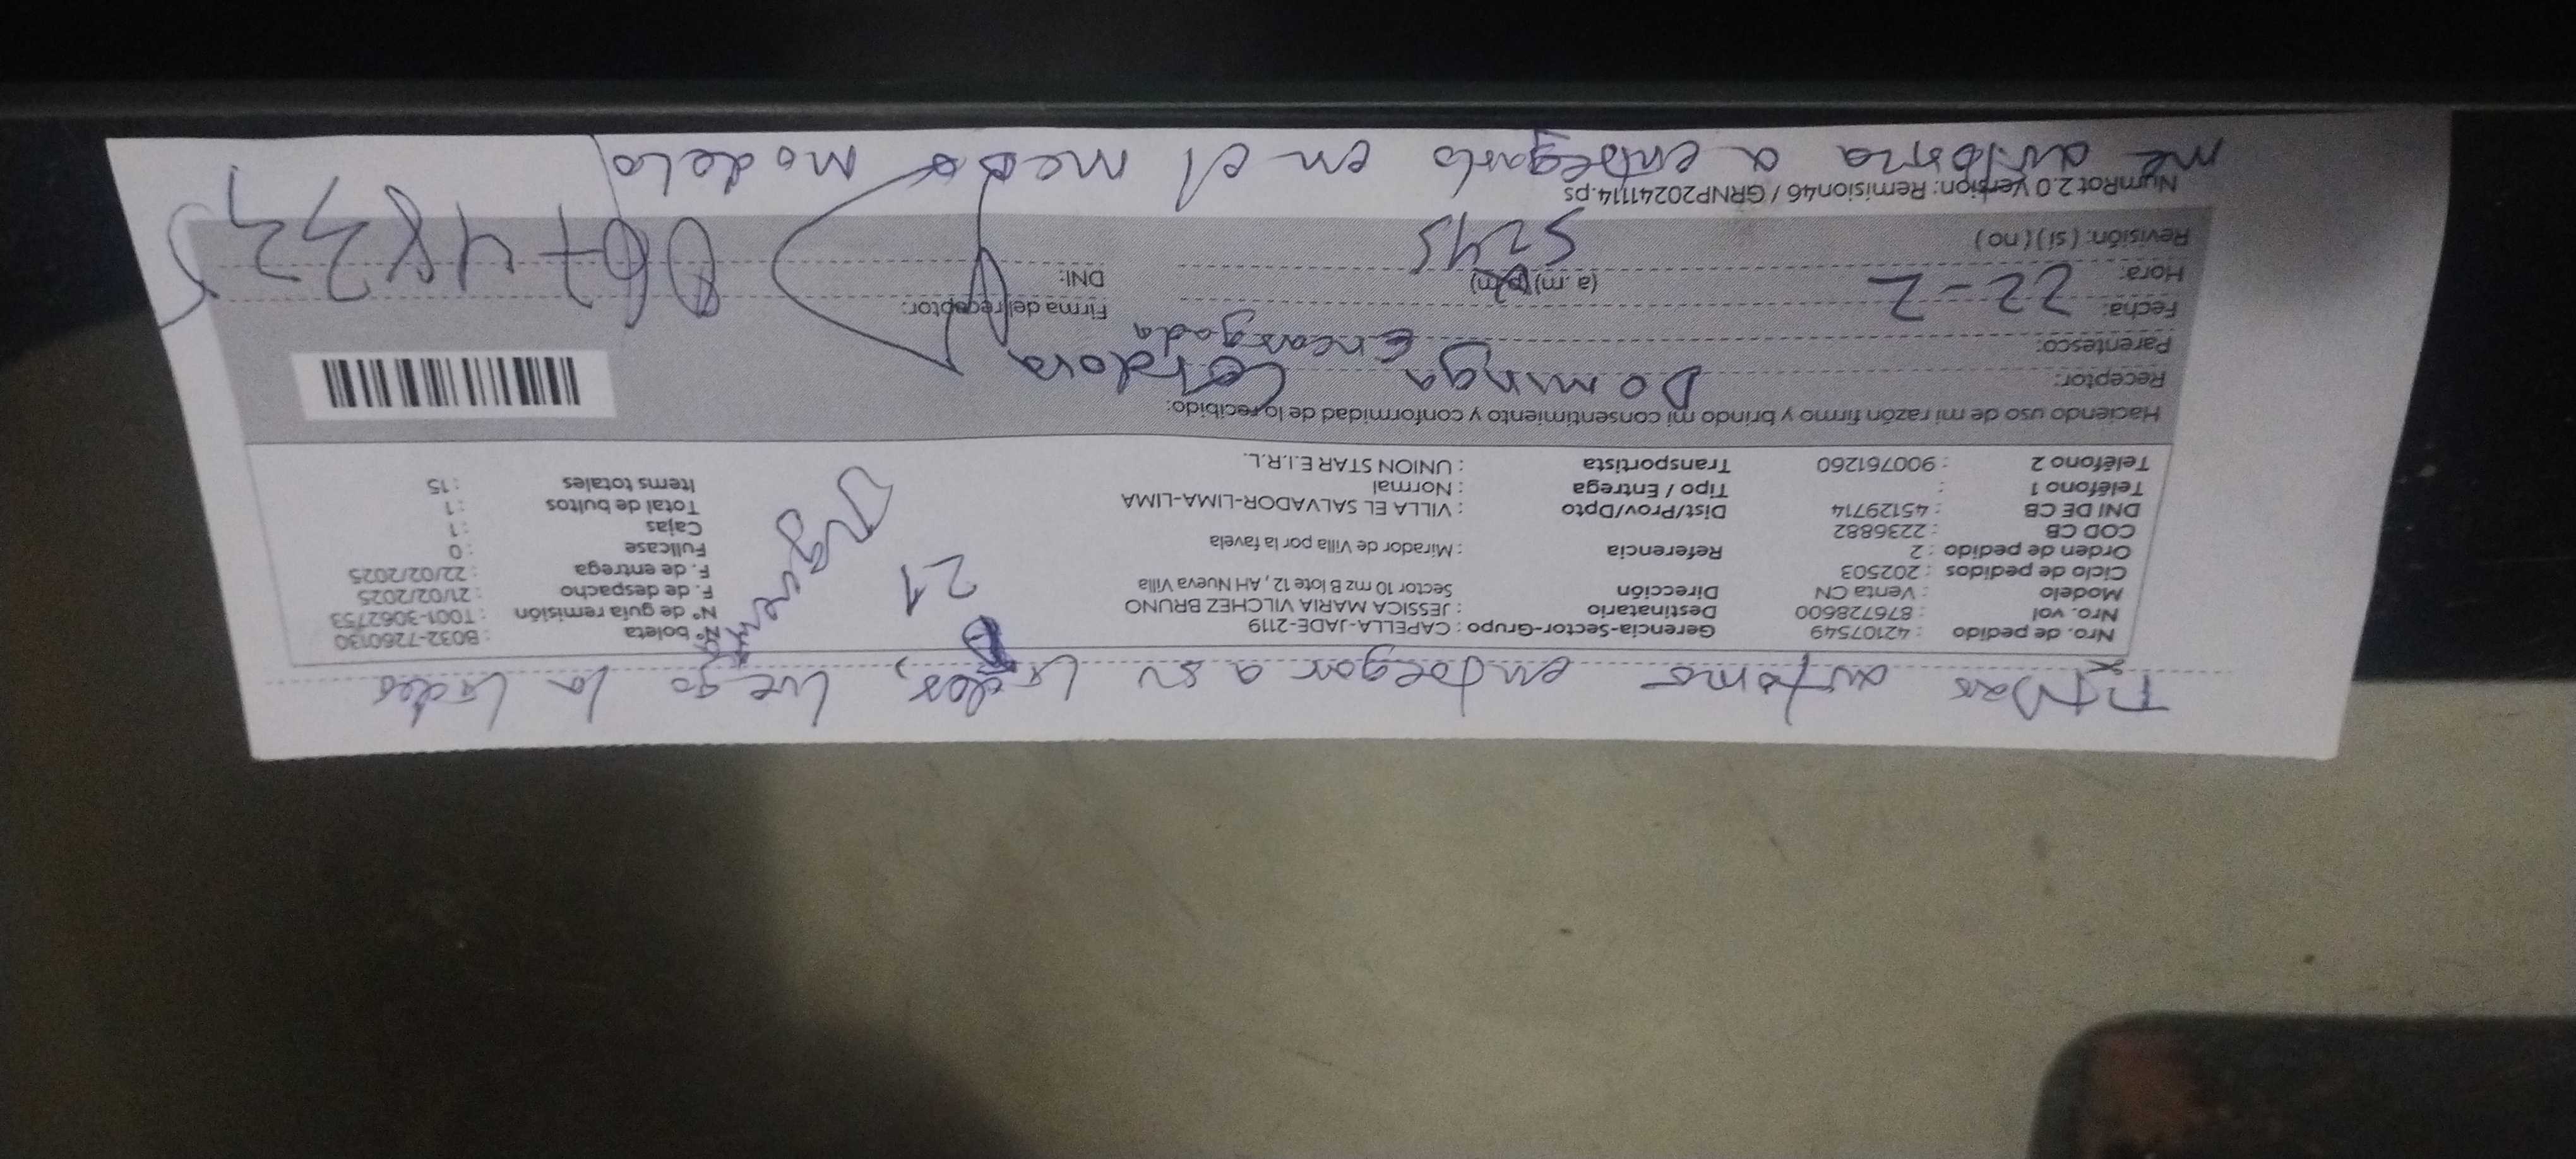 autoriza entregar a su Lider, Luego la Lider
Nro. de pedido : 42107549 Gerencia-Sector-Grupo : CAPELLA-JADE-2119 Nº boleta : B032-7260130
Nro. vol : 876728600 Destinatario : JESSICA MARIA VILCHEZ BRUNO Nº de guía remisión : T001-3062753
Modelo : Venta CN Dirección Sector 10 mz B lote 12, AH Nueva Villa F. de despacho : 21/02/2025
Ciclo de pedidos : 202503 F. de entrega : 22/02/2025
Orden de pedido : 2 Referencia : Mirador de Villa por la favela Fullcase : 0
COD CB : 2236882 Cajas : 1
DNI DE CB : 45129714 Dist/Prov/Dpto : VILLA EL SALVADOR-LIMA-LIMA Total de bultos : 1
Teléfono 1 : Tipo / Entrega : Normal Items totales : 15
Teléfono 2 : 900761260 Transportista : UNION STAR E.I.R.L.
21
Urgente
Haciendo uso de mi razón firmo y brindo mi consentimiento y conformidad de lo recibido:
Receptor: Dominga Cordova
Parentesco: Encargada
Fecha: 22-2 Firma del receptor:
Hora: (a.m) (p.m) 5245 DNI: 06748323
Revisión: (si) (no)
NumRot 2.0 Version: Remision46 / GRNP20241114.ps
me autoriza a entregarlo en el modelo